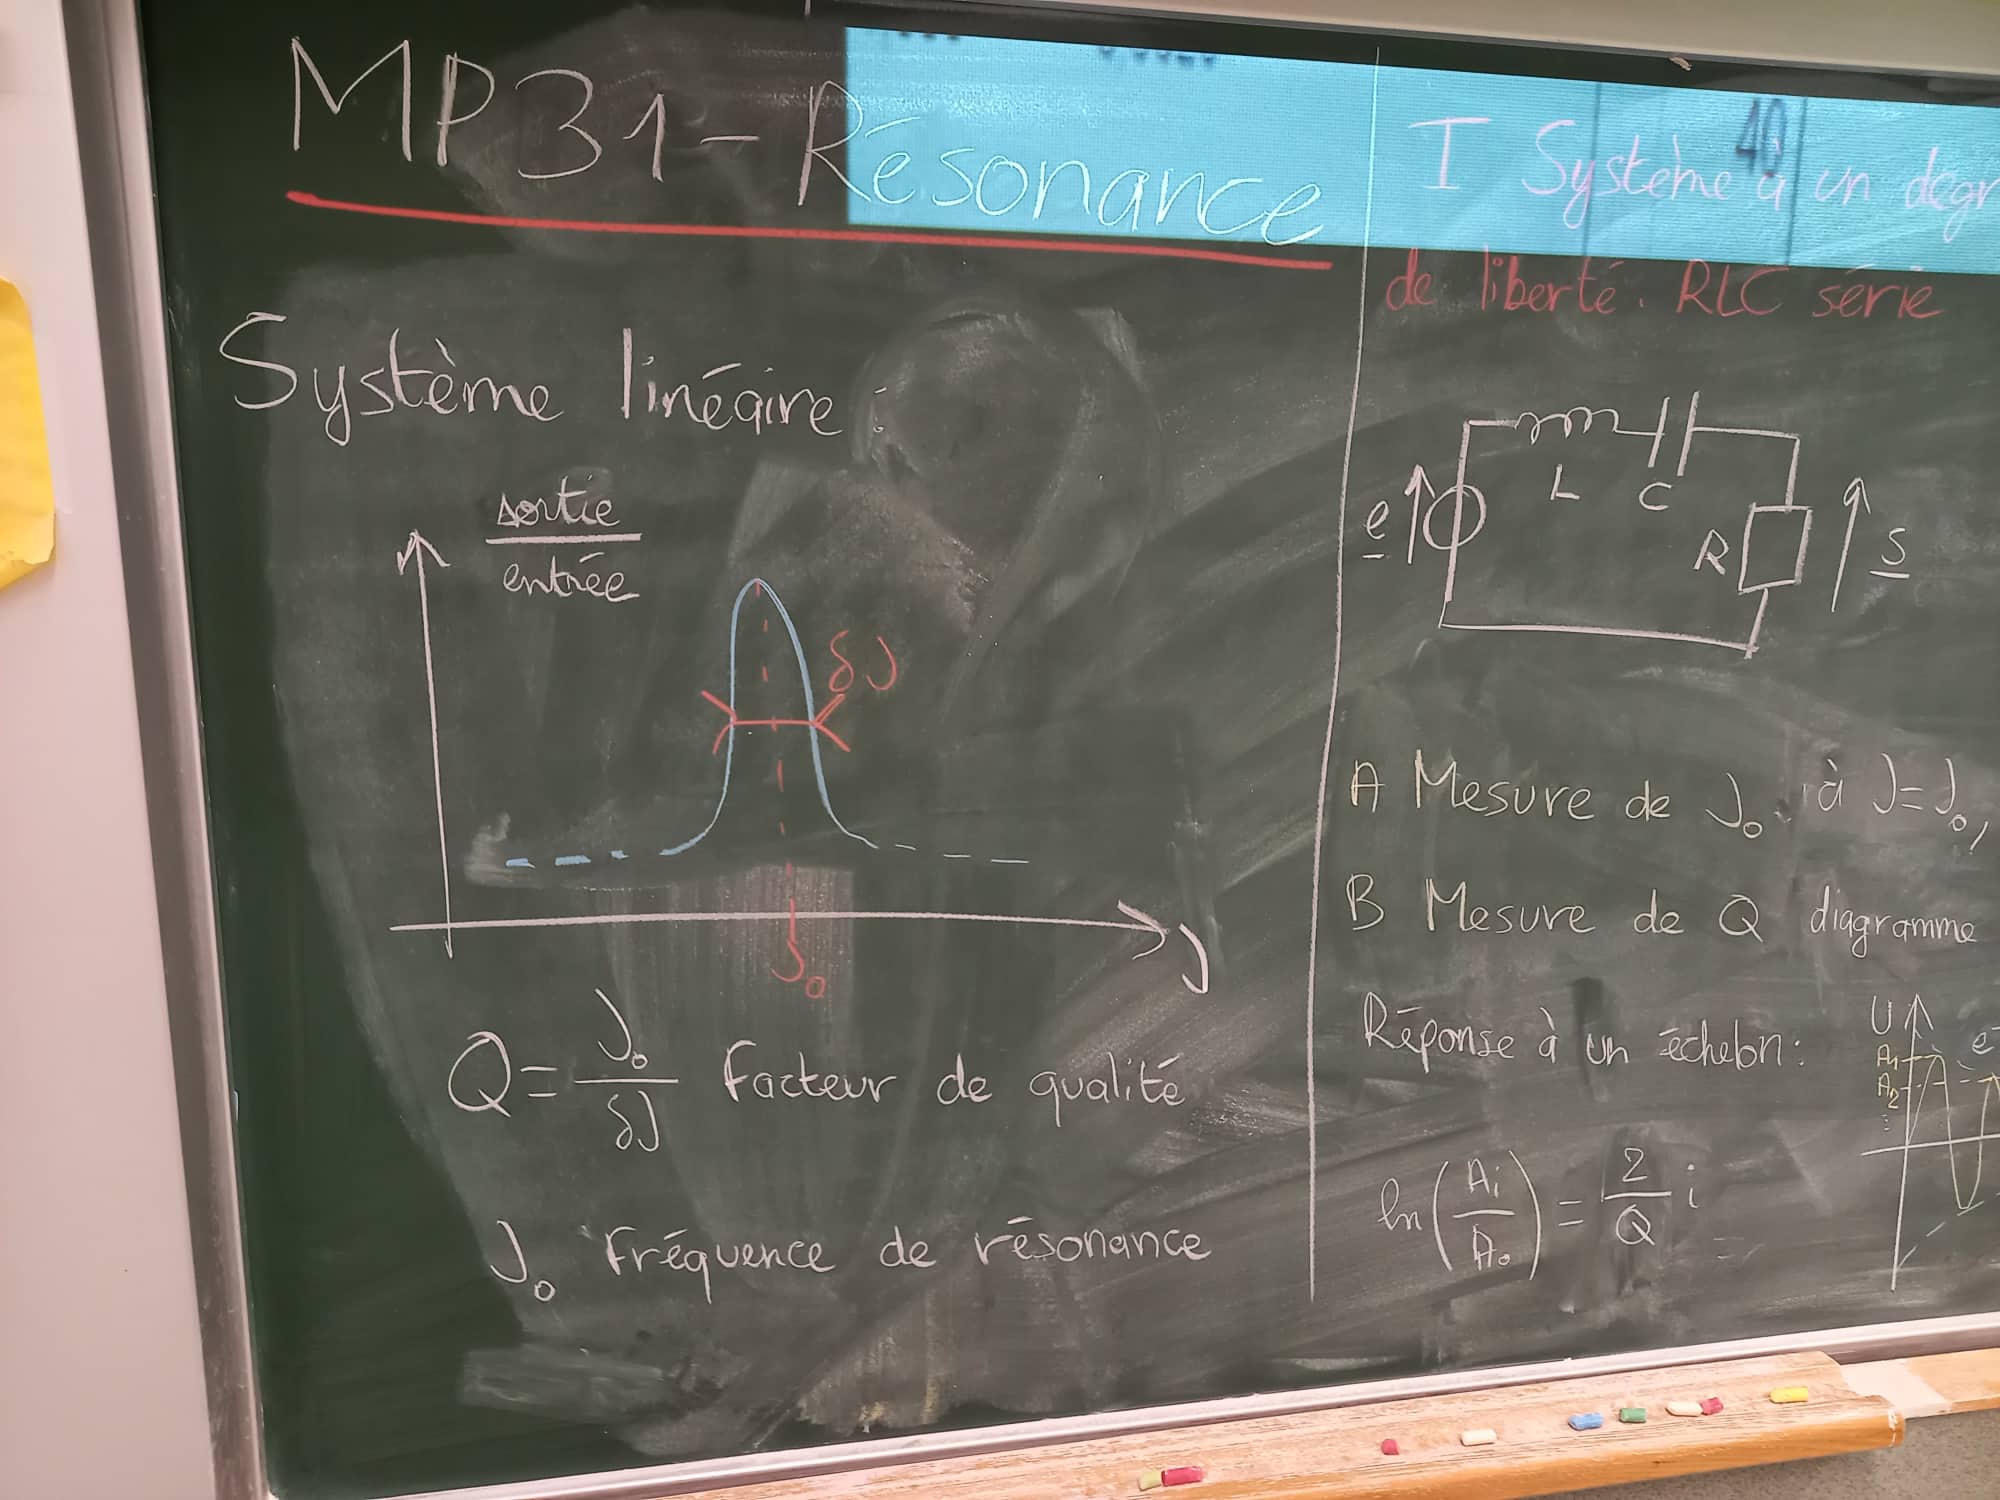 MP31 - Résonance
Système linéaire :
sortie
entrée
δν
ν
ν₀
Q = ν₀/δν facteur de qualité
ν₀ Fréquence de résonance
I Système à un degr
de liberté. RLC série
40
L C
e
R
s
A Mesure de ν₀ à ν=ν₀,
B Mesure de Q diagramme
Réponse à un échelon :
U
A₁
A₂
e
ln(Aᵢ/A₀) = 2/Q i